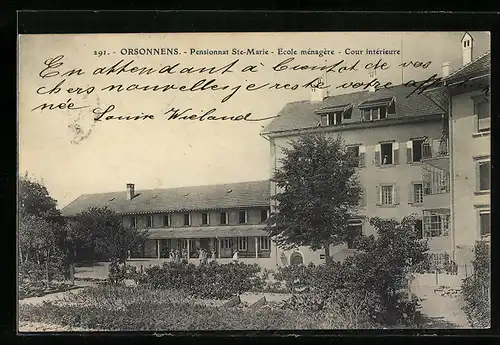 291. - ORSONNENS. - Pensionnat Ste-Marie - Ecole ménagère - Cour intérieure
En attendant à bientôt de vos
chers nouvelles je reste votre affection
née
Louise Wieland